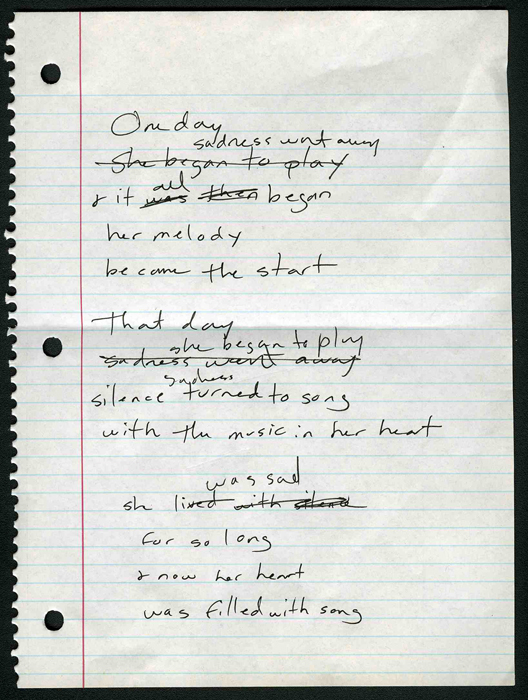 One day
sadness went away
She began to play
all
& it was then began
her melody
became the start
That day
she began to play
sadness went away
sadness
silence turned to song
with the music in her heart
was sad
she lived with silence
for so long
& now her heart
was filled with song